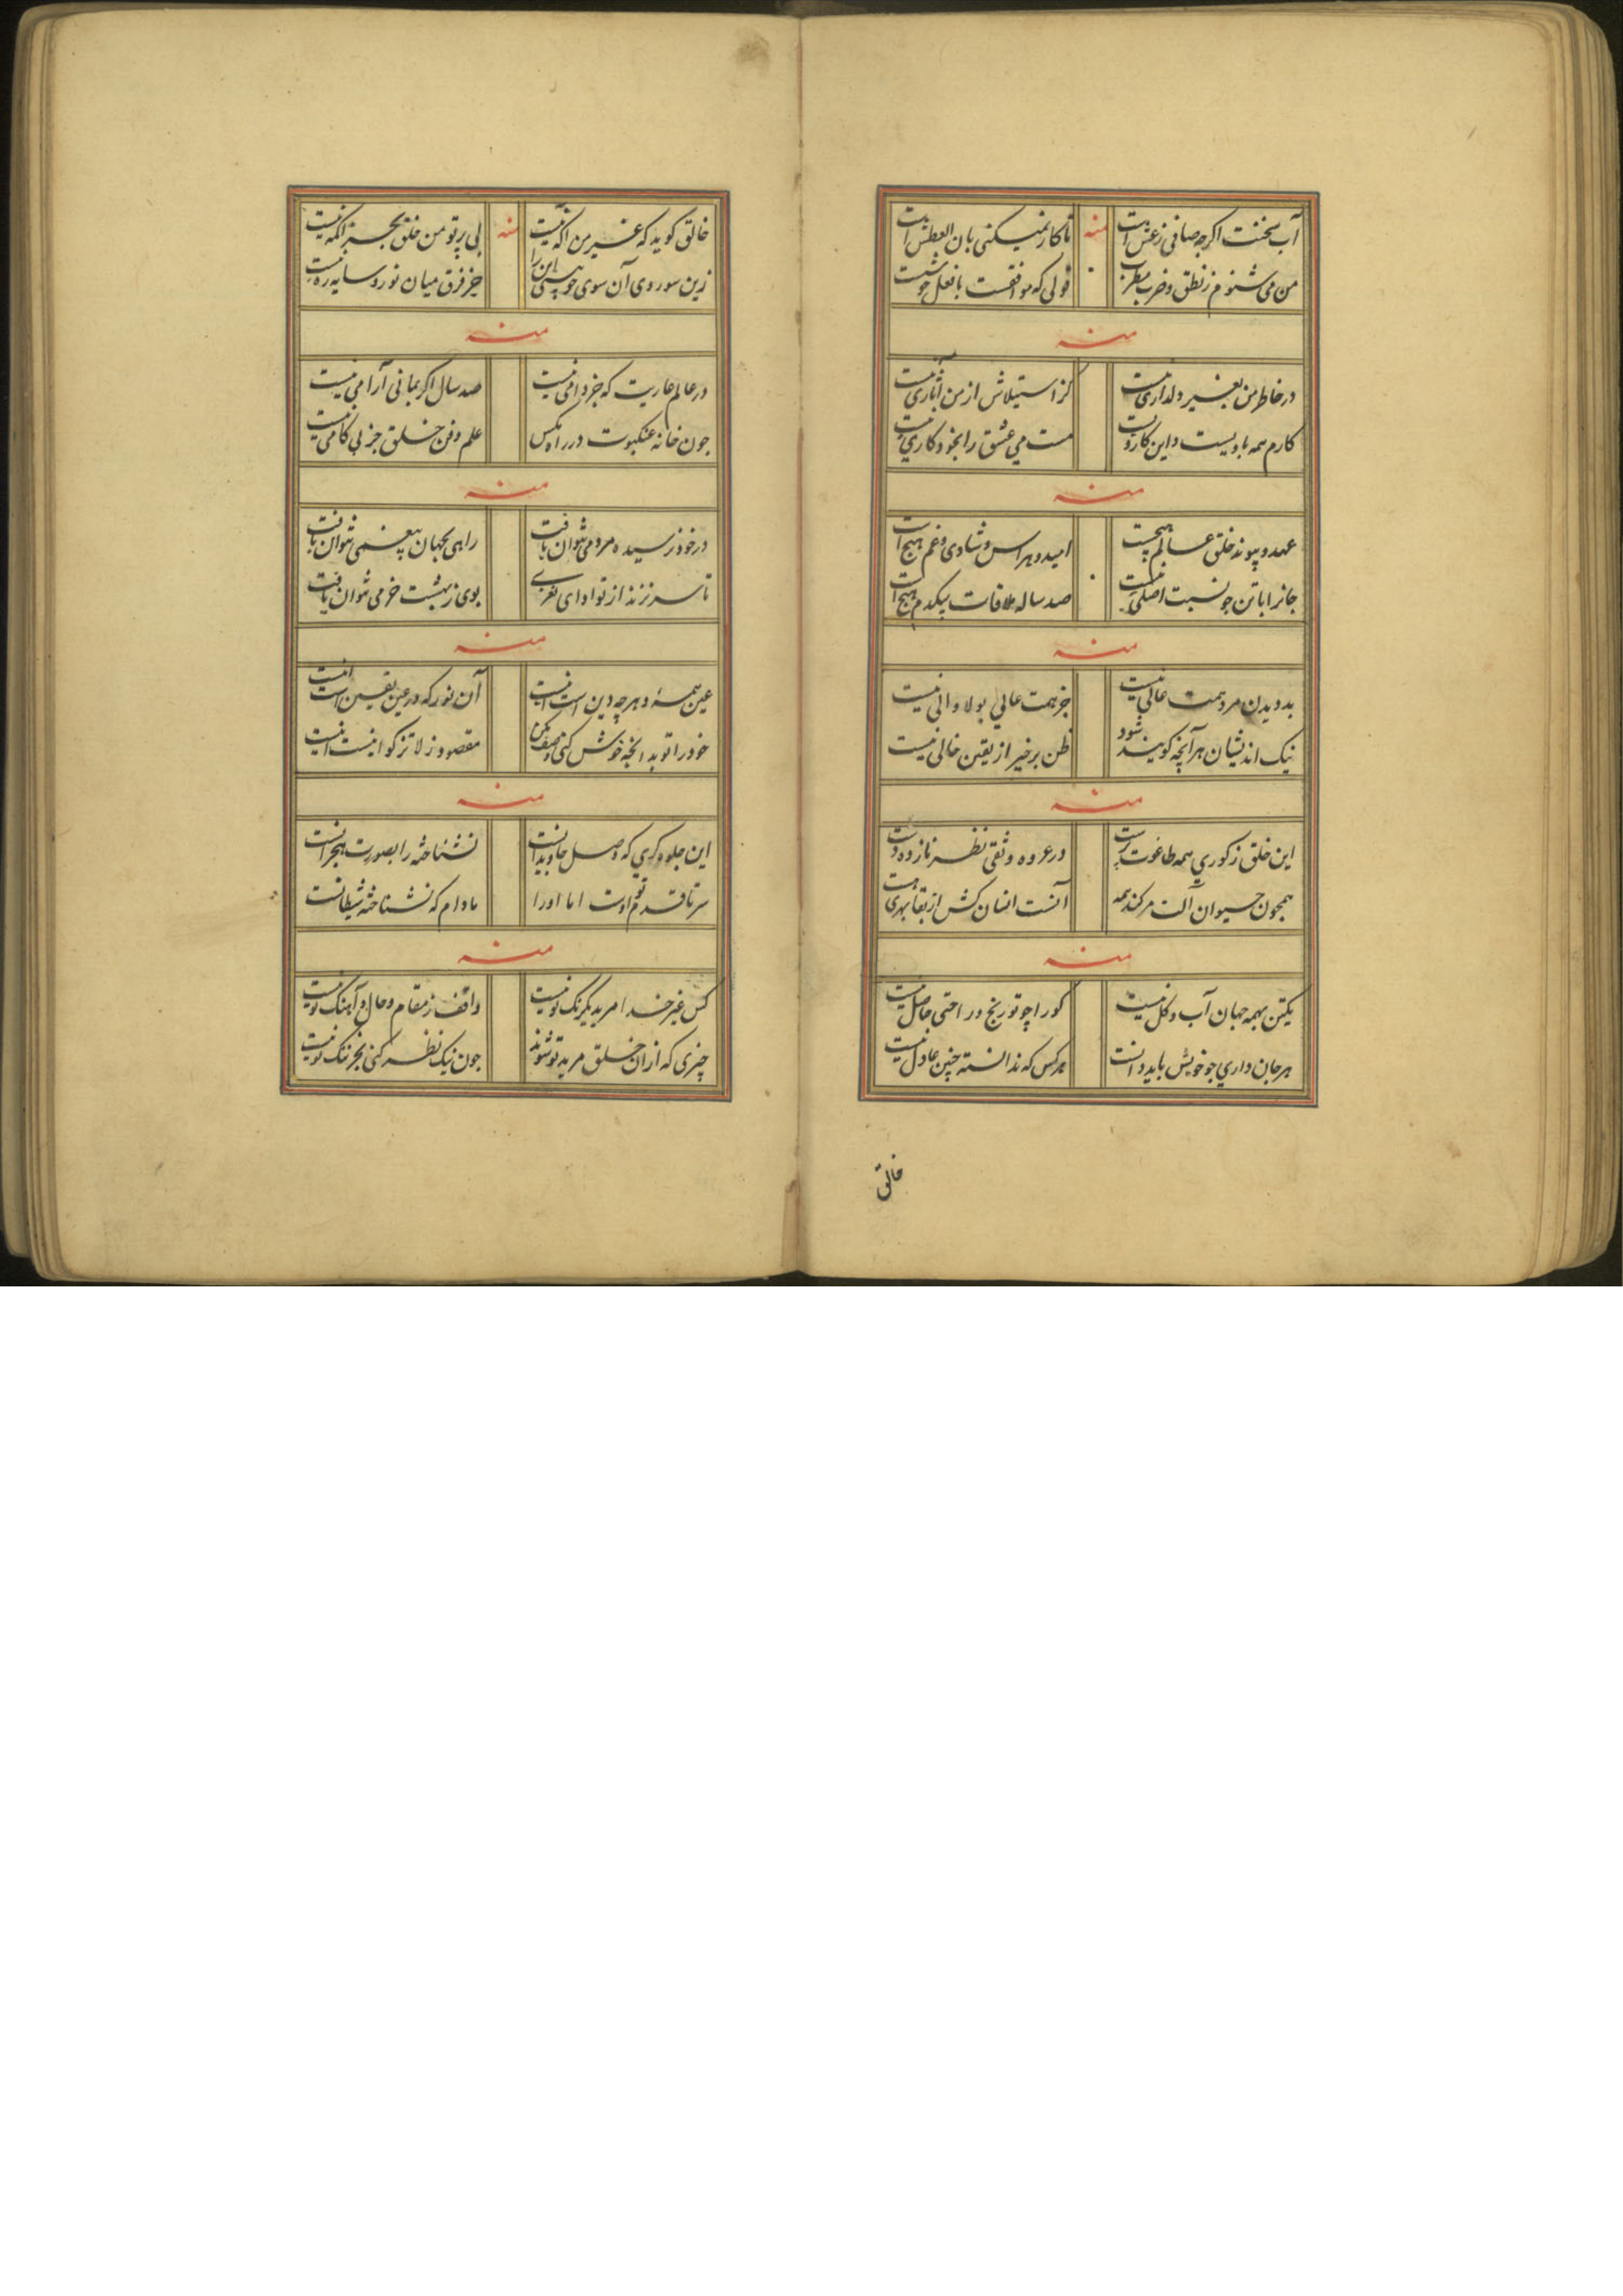 آب سخنت اگرچه صافی ز غش است منه تا کار نمیکنی بان العطش است
من می شنوم ز نطق و ضرب مطرب قولی که موافقست با فعل خوشست
منه
در خاطر من بغیر دلداری نیست کز استیلاش از من آثاری نیست
کارم همه با ویست و این کار ویست مست می عشق را بخود کاری نیست
منه
عهد و پیوند خلق عالم هیچست امید و هراس و شادی و غم هیچ است
جانرا با تن چو نسبت اصلی نیست صد ساله ملاقات بیکدم هیچ است
منه
بد دیدن مرد همت عالی نیست جز همت عالی بولا والی نیست
نیک اندیشان هر آنچه گویند شود ظن بر خیر از یقین خالی نیست
منه
این خلق ز کوری همه طاغوت پرست در عروه وثقی نظر نازده دست
همچون حیوان آلت مرکند همه آنست انسان کش از بقا بهری هست
منه
یکتن بهمه جهان آب و گل نیست کورا چو تو رنج و راحتی حاصل نیست
هر جان داری چو خویش باید دانست هر کس که ندانسته چنین عادل نیست
خالق
خالق گوید که غیر من آگه نیست منه بی پرتو من خلق بجز اکمه نیست
زین سو روی آن سوی چو بینی این را جز فرق میان نور و سایه ره نیست
منه
در عالم عاریت که جز دامی نیست صد سال اگر بمانی آرامی نیست
چون خانه عنکبوت در راه مگس علم و فن خلق جز پی کامی نیست
منه
در خود نرسیده مردمی نتوان یافت راهی بجهان بیغمی نتوان یافت
تا سر نزند از تو ادای نغری بوی ز بهشت خرمی نتوان یافت
منه
عین همه و هر چه دین است اینست آن نور که در عین یقین است اینست
خود را تو بد آنچه خوش کنی وصف مکن مقصود ز لا تزکوا اینست اینست
منه
این جلوه گری که وصل جاویدانست نشناخته را بصورت هجرانست
سر تا قدم اوست اما او را مادام که نشناخته شیطانست
منه
کس غیر خدا مرید یکرنگ تو نیست واقف ز مقام و حال و آهنگ تو نیست
چیزی که از ان خلق مرید تو شوند چون نیک نظر کنی بجز ننگ تو نیست